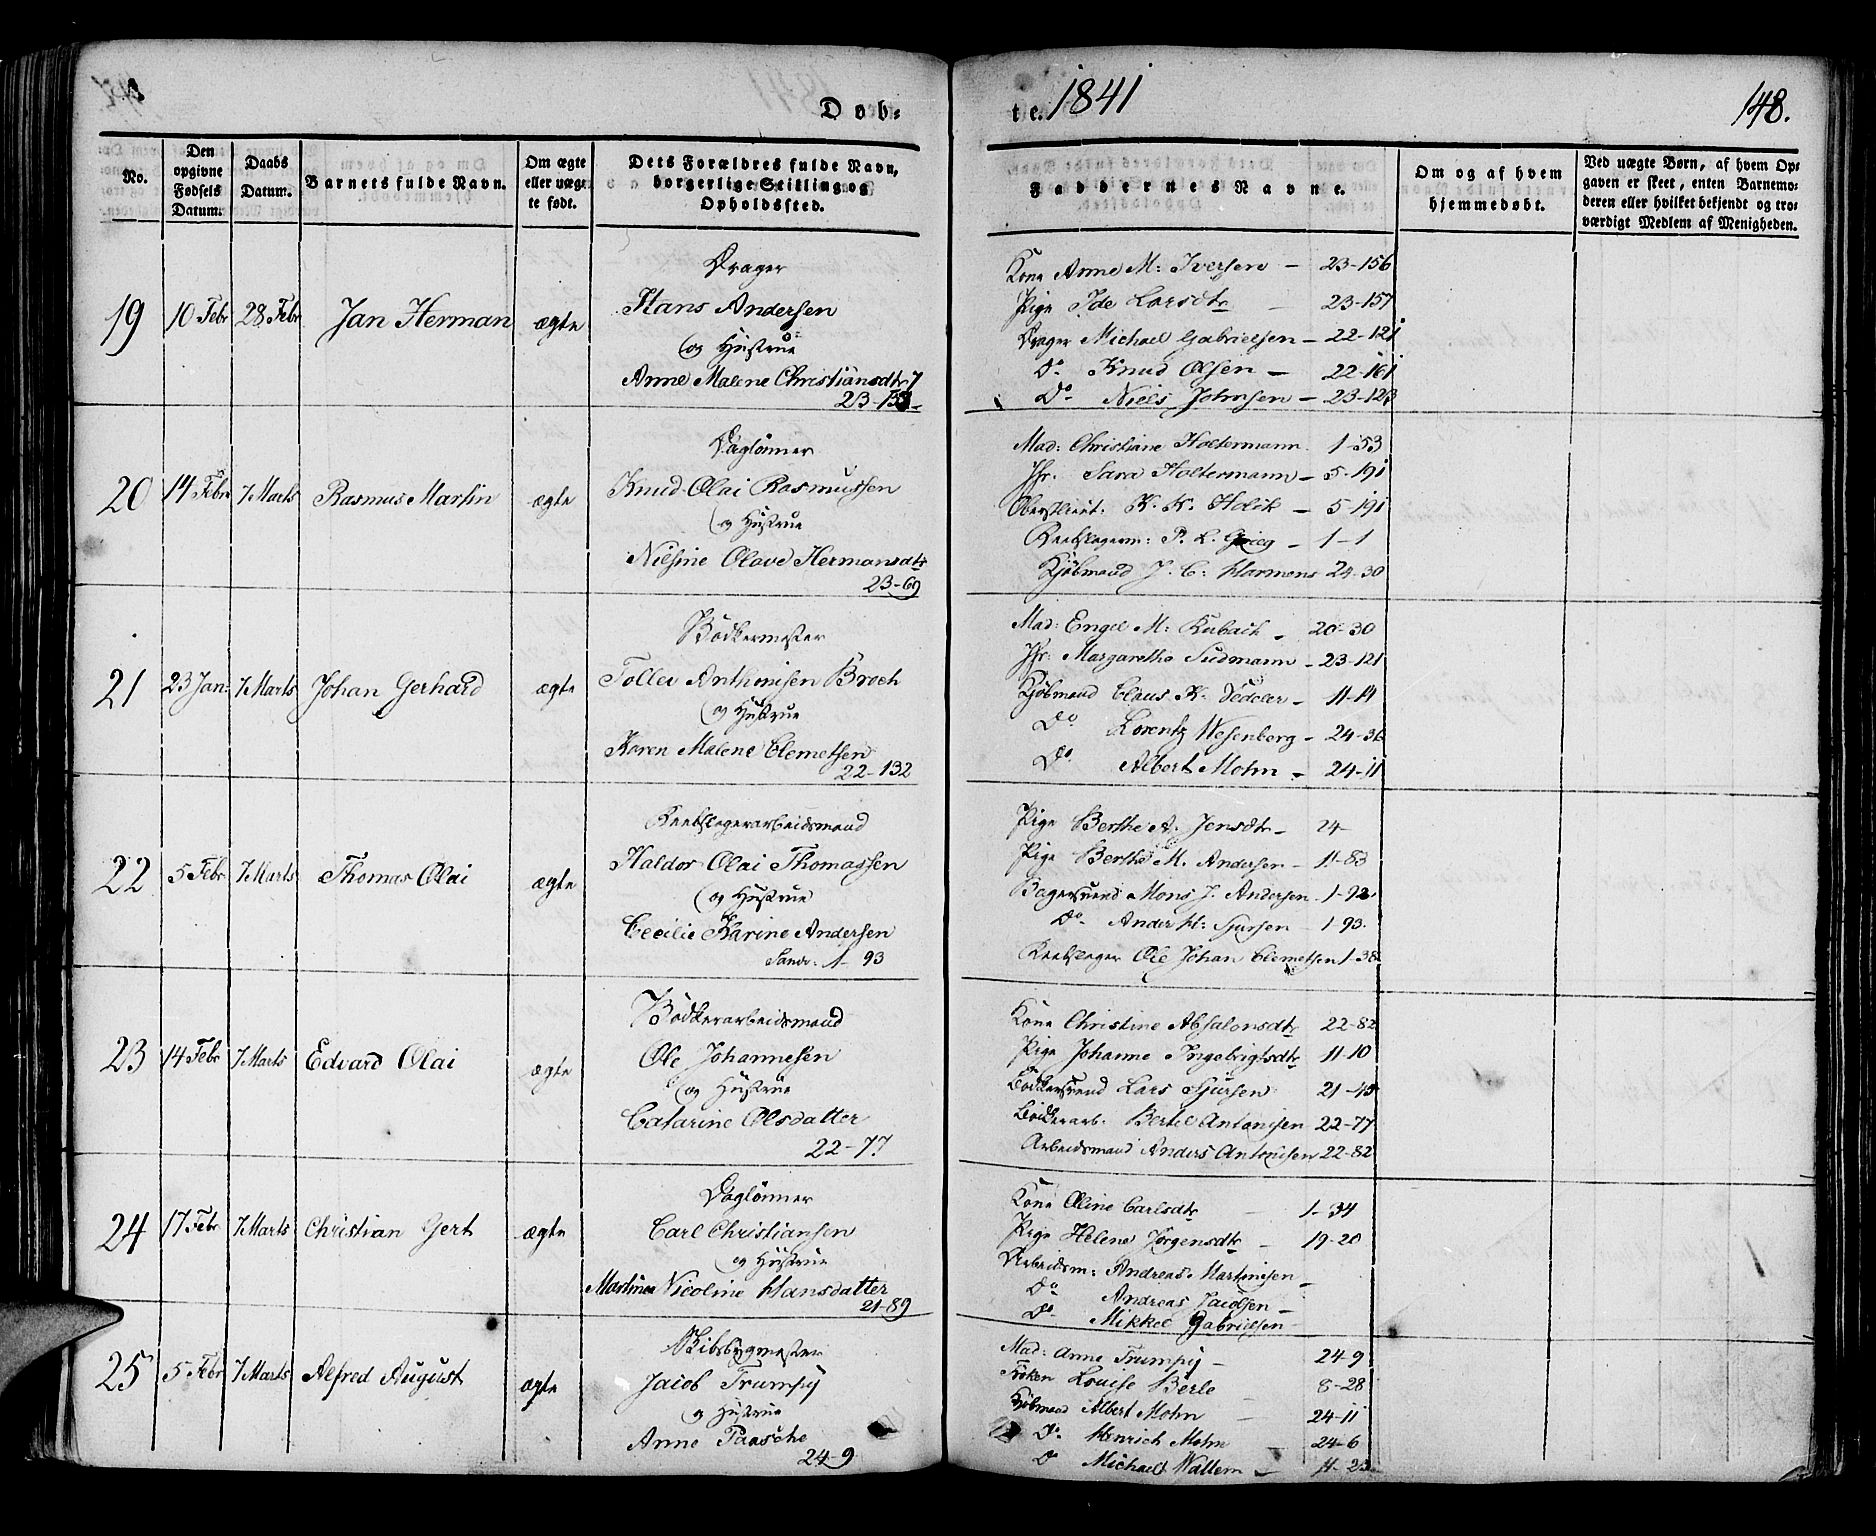 Døb-
te. 1841
148.
No.
Den opgivne Fødsels Datum.
Daabs Datum.
Barnets fulde Navn.
Om ægte eller uægte født.
Dets Forældres fulde Navn, borgerlige Stilling og Opholdssted.
Faddernes Navne.
Om og af hvem hjemmedøbt.
Ved uægte Børn, af hvem Op-
gaven er skeet, enten Barnemo-
deren eller hvilket bekjendt og tro-
værdigt Medlem af Menigheden.
19 10 Febr 28 Febr Jan Herman ægte
Drager
Hans Andersen
og Hustrue
Anne Malene Christiansdtr
Kone Anne M: Iversen – 23-156
Pige Ide Larsdtr 23-157
Drager Michael Gabrielsen – 22-121
Do Knud Olsen – 22-161
Do Niels Johnsen – 23-123
20 14 Febr 7 Marts Rasmus Martin ægte
Daglönner
Knud Olai Rasmussen
og Hustrue
Nilsine Olave Hermansdtr
23-69
Mad: Christiane Holtermann 1-53
Jfr. Sara Holtermann – 5-191
Oberstlieut: K. K. Holck – 5-191
Reebslagerm: P. L. Grieg – 1-1
Kjøbmand J. C: Harmens 24-30
21 23 Jan: 7 Marts Johan Gerhard ægte
Bödkermester
Toller Anthonisen Broch
og Hustrue
Karen Malene Clemetsen
22-132
Mad: Engel M: Kubach – 20-30
Jfr: Margarethe Sudmann – 23-121
Kjøbmand Claus K: Dedeler – 11-14
Do Lorentz Wesenberg – 24-36
Do Albert Mohn – 24-11
22 5 Febr 7 Marts Thomas Olai ægte
Reebslagerarbeidsmand
Haldor Olai Thomassen
og Hustrue
Cecilie Karine Andersen
Sandv: 1-93
Pige Berthe A. Jensdtr – 24-
Pige Berthe M. Andersen – 11-83
Bagersvend Mons J. Andersen 1-92
Do Ander H: Sjursen – 1-93.
Reebslager Ole Johan Clemetsen 1-38
23 14 Febr 7 Marts Edvard Olai ægte
Bödkerarbeidsmand
Ole Johannesen
og Hustrue
Catarine Olsdatter
22-77
Kone Christine Absalonsdtr 22-82
Pige Johanne Ingebrigtsdtr 11-10
Bödkersvend Lars Sjursen 21-45
Bödkerarb. Bertel Antonisen 22-77
Arbeidsmand Anders Antonisen 22-82
24 17 Febr 7 Marts Christian Gert ægte
Daglönner
Carl Christiansen
og Hustrue
Martine Nicoline Hansdatter
21-89
Kone Oline Carlsdtr – 1-34
Pige Helene Jørgensdtr – 19-20
Arbeidsm: Andreas Martinisen –
Do Andreas Jacobsen –
Do Mikkel Gabrielsen
25 5 Febr 7 Marts Alfred August ægte
Skibsbygmester
Jacob Trumpy
og Hustrue
Anne Paasche
24-9
Mad: Anne Trumpy – 24-9
Frøken Louise Berle 8-28
Kjøbmand Albert Mohn – 24-11
Do Henrich Mohn 24-6
Do Michael Wallem – 11-23